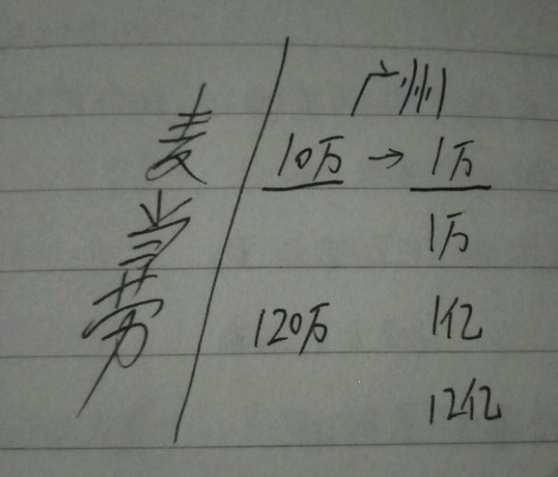 麦当劳
广州
10万→1万
1万
120万 1亿
12亿